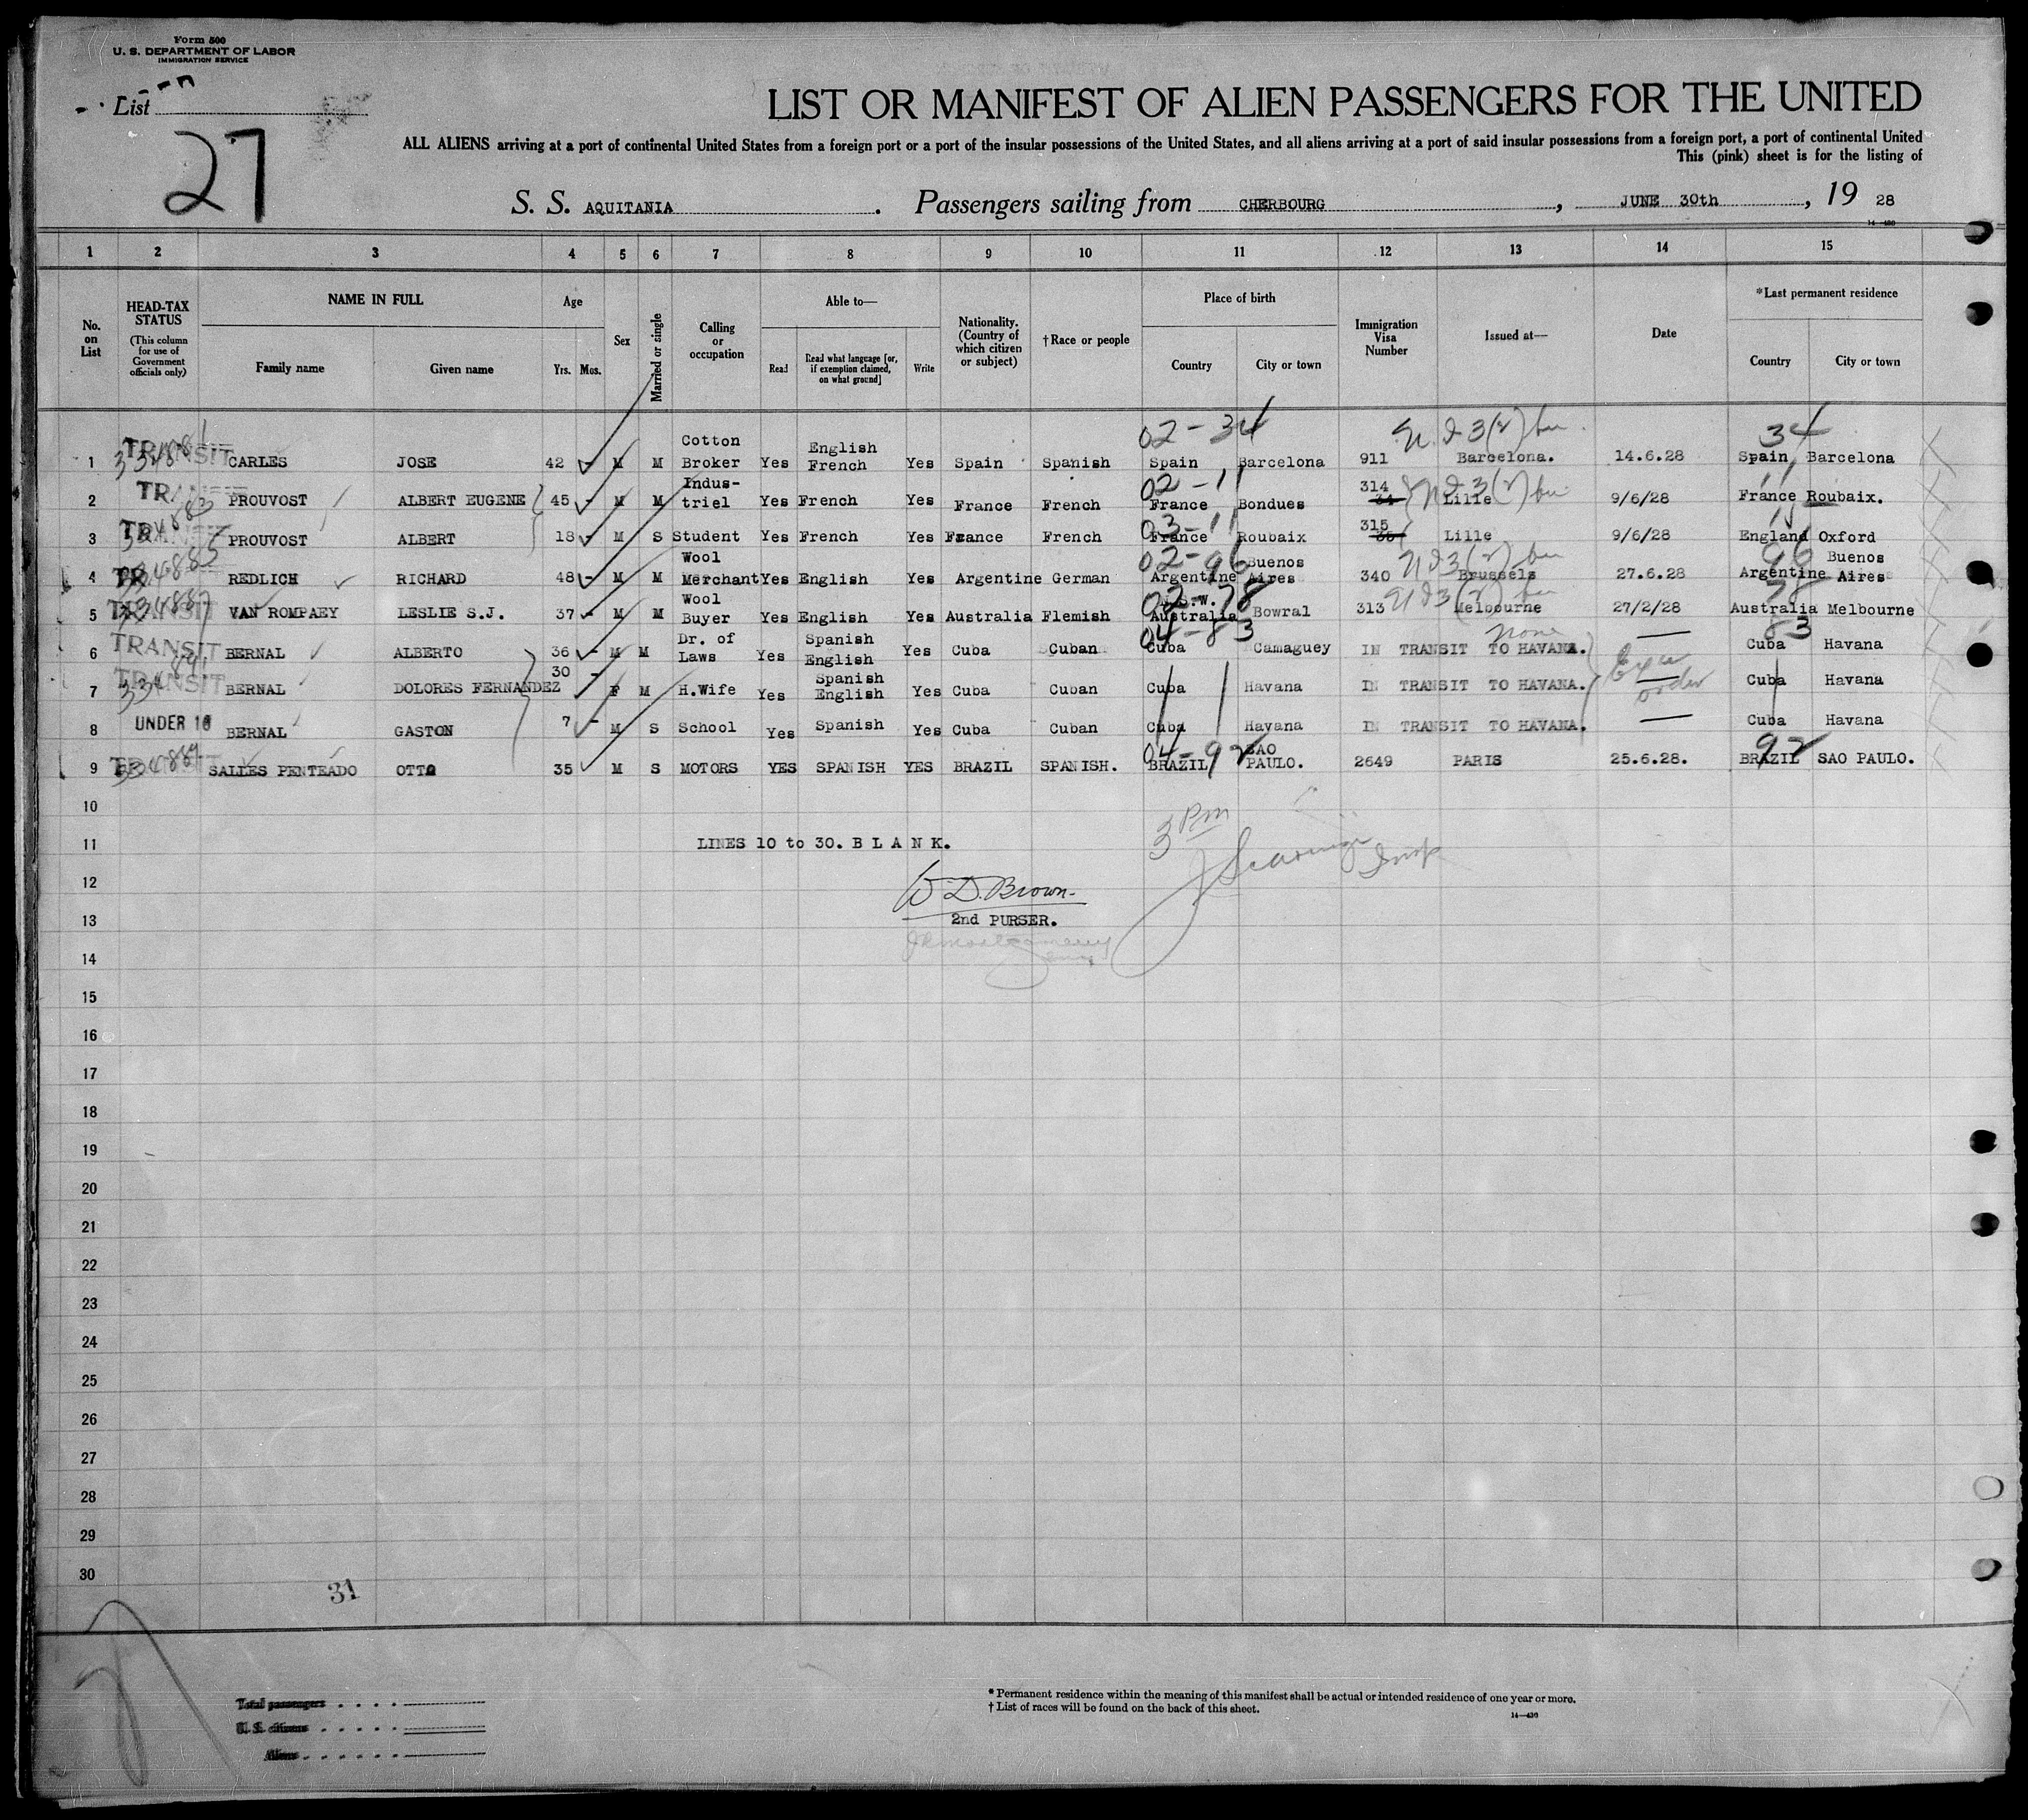 Form 500
U. S. DEPARTMENT OF LABOR
IMMIGRATION SERVICE
List
27
LIST OR MANIFEST OF ALIEN PASSENGERS FOR THE UNITED
ALL ALIENS arriving at a port of continental United States from a foreign port or a port of the insular possessions of the United States, and all aliens arriving at a port of said insular possessions from a foreign port, a port of continental United
This (pink) sheet is for the listing of
S. S. AQUITANIA. Passengers sailing from CHERBOURG, JUNE 30th, 19 28
14—430
1 2 3 4 5 6 7 8 9 10 11 12 13 14 15
No. on List
HEAD-TAX STATUS (This column for use of Government officials only)
NAME IN FULL
Family name Given name
Age
Yrs. Mos.
Sex
Married or single
Calling or occupation
Able to—
Read Read what language [or, if exemption claimed, on what ground] Write
Nationality. (Country of which citizen or subject)
†Race or people
Place of birth
Country City or town
Immigration Visa Number
Issued at—
Date
*Last permanent residence
Country City or town
02-34 34
1 TRANSIT CARLES JOSE 42 M M Cotton Broker Yes English French Yes Spain Spanish Spain Barcelona 911 Barcelona. 14.6.28 Spain Barcelona
02-11 11
2 PROUVOST ALBERT EUGENE 45 - M M Indus-triel Yes French Yes France French France Bondues 314 Lille 9/6/28 France Roubaix.
03-11
3 PROUVOST ALBERT 18 M S Student Yes French Yes France French France Roubaix 315 Lille 9/6/28 England Oxford
02-96 96
4 REDLICH RICHARD 48 - M M Wool Merchant Yes English Yes Argentine German Argentine Buenos Aires 340 Brussels 27.6.28 Argentine Buenos Aires
02-78 78
5 TRANSIT VAN ROMPAEY LESLIE S.J. 37 - M M Wool Buyer Yes English Yes Australia Flemish N.S.W. Australia Bowral 313 Melbourne 27/2/28 Australia Melbourne
04-83 none 83
6 TRANSIT BERNAL ALBERTO 36 - M M Dr. of Laws Yes Spanish English Yes Cuba Cuban Cuba Camaguey IN TRANSIT TO HAVANA. — Cuba Havana
7 TRANSIT BERNAL DOLORES FERNANDEZ 30 - F M H.Wife Yes Spanish English Yes Cuba Cuban Cuba Havana IN TRANSIT TO HAVANA. — Cuba Havana
order
8 UNDER 16 BERNAL GASTON 7 - M S School Yes Spanish Yes Cuba Cuban Cuba Havana IN TRANSIT TO HAVANA. — Cuba Havana
04-92 92
9 TRANSIT SALLES PENTEADO OTTO 35 M S MOTORS YES SPANISH YES BRAZIL SPANISH. BRAZIL SAO PAULO. 2649 PARIS 25.6.28. BRAZIL SAO PAULO.
10
3 Pm
11 LINES 10 to 30. B L A N K.
12
W D. Brown
13 2nd PURSER.
14
15
16
17
18
19
20
21
22
23
24
25
26
27
28
29
30
31
Total passengers
U. S. citizens
Aliens
* Permanent residence within the meaning of this manifest shall be actual or intended residence of one year or more.
† List of races will be found on the back of this sheet.
14—430